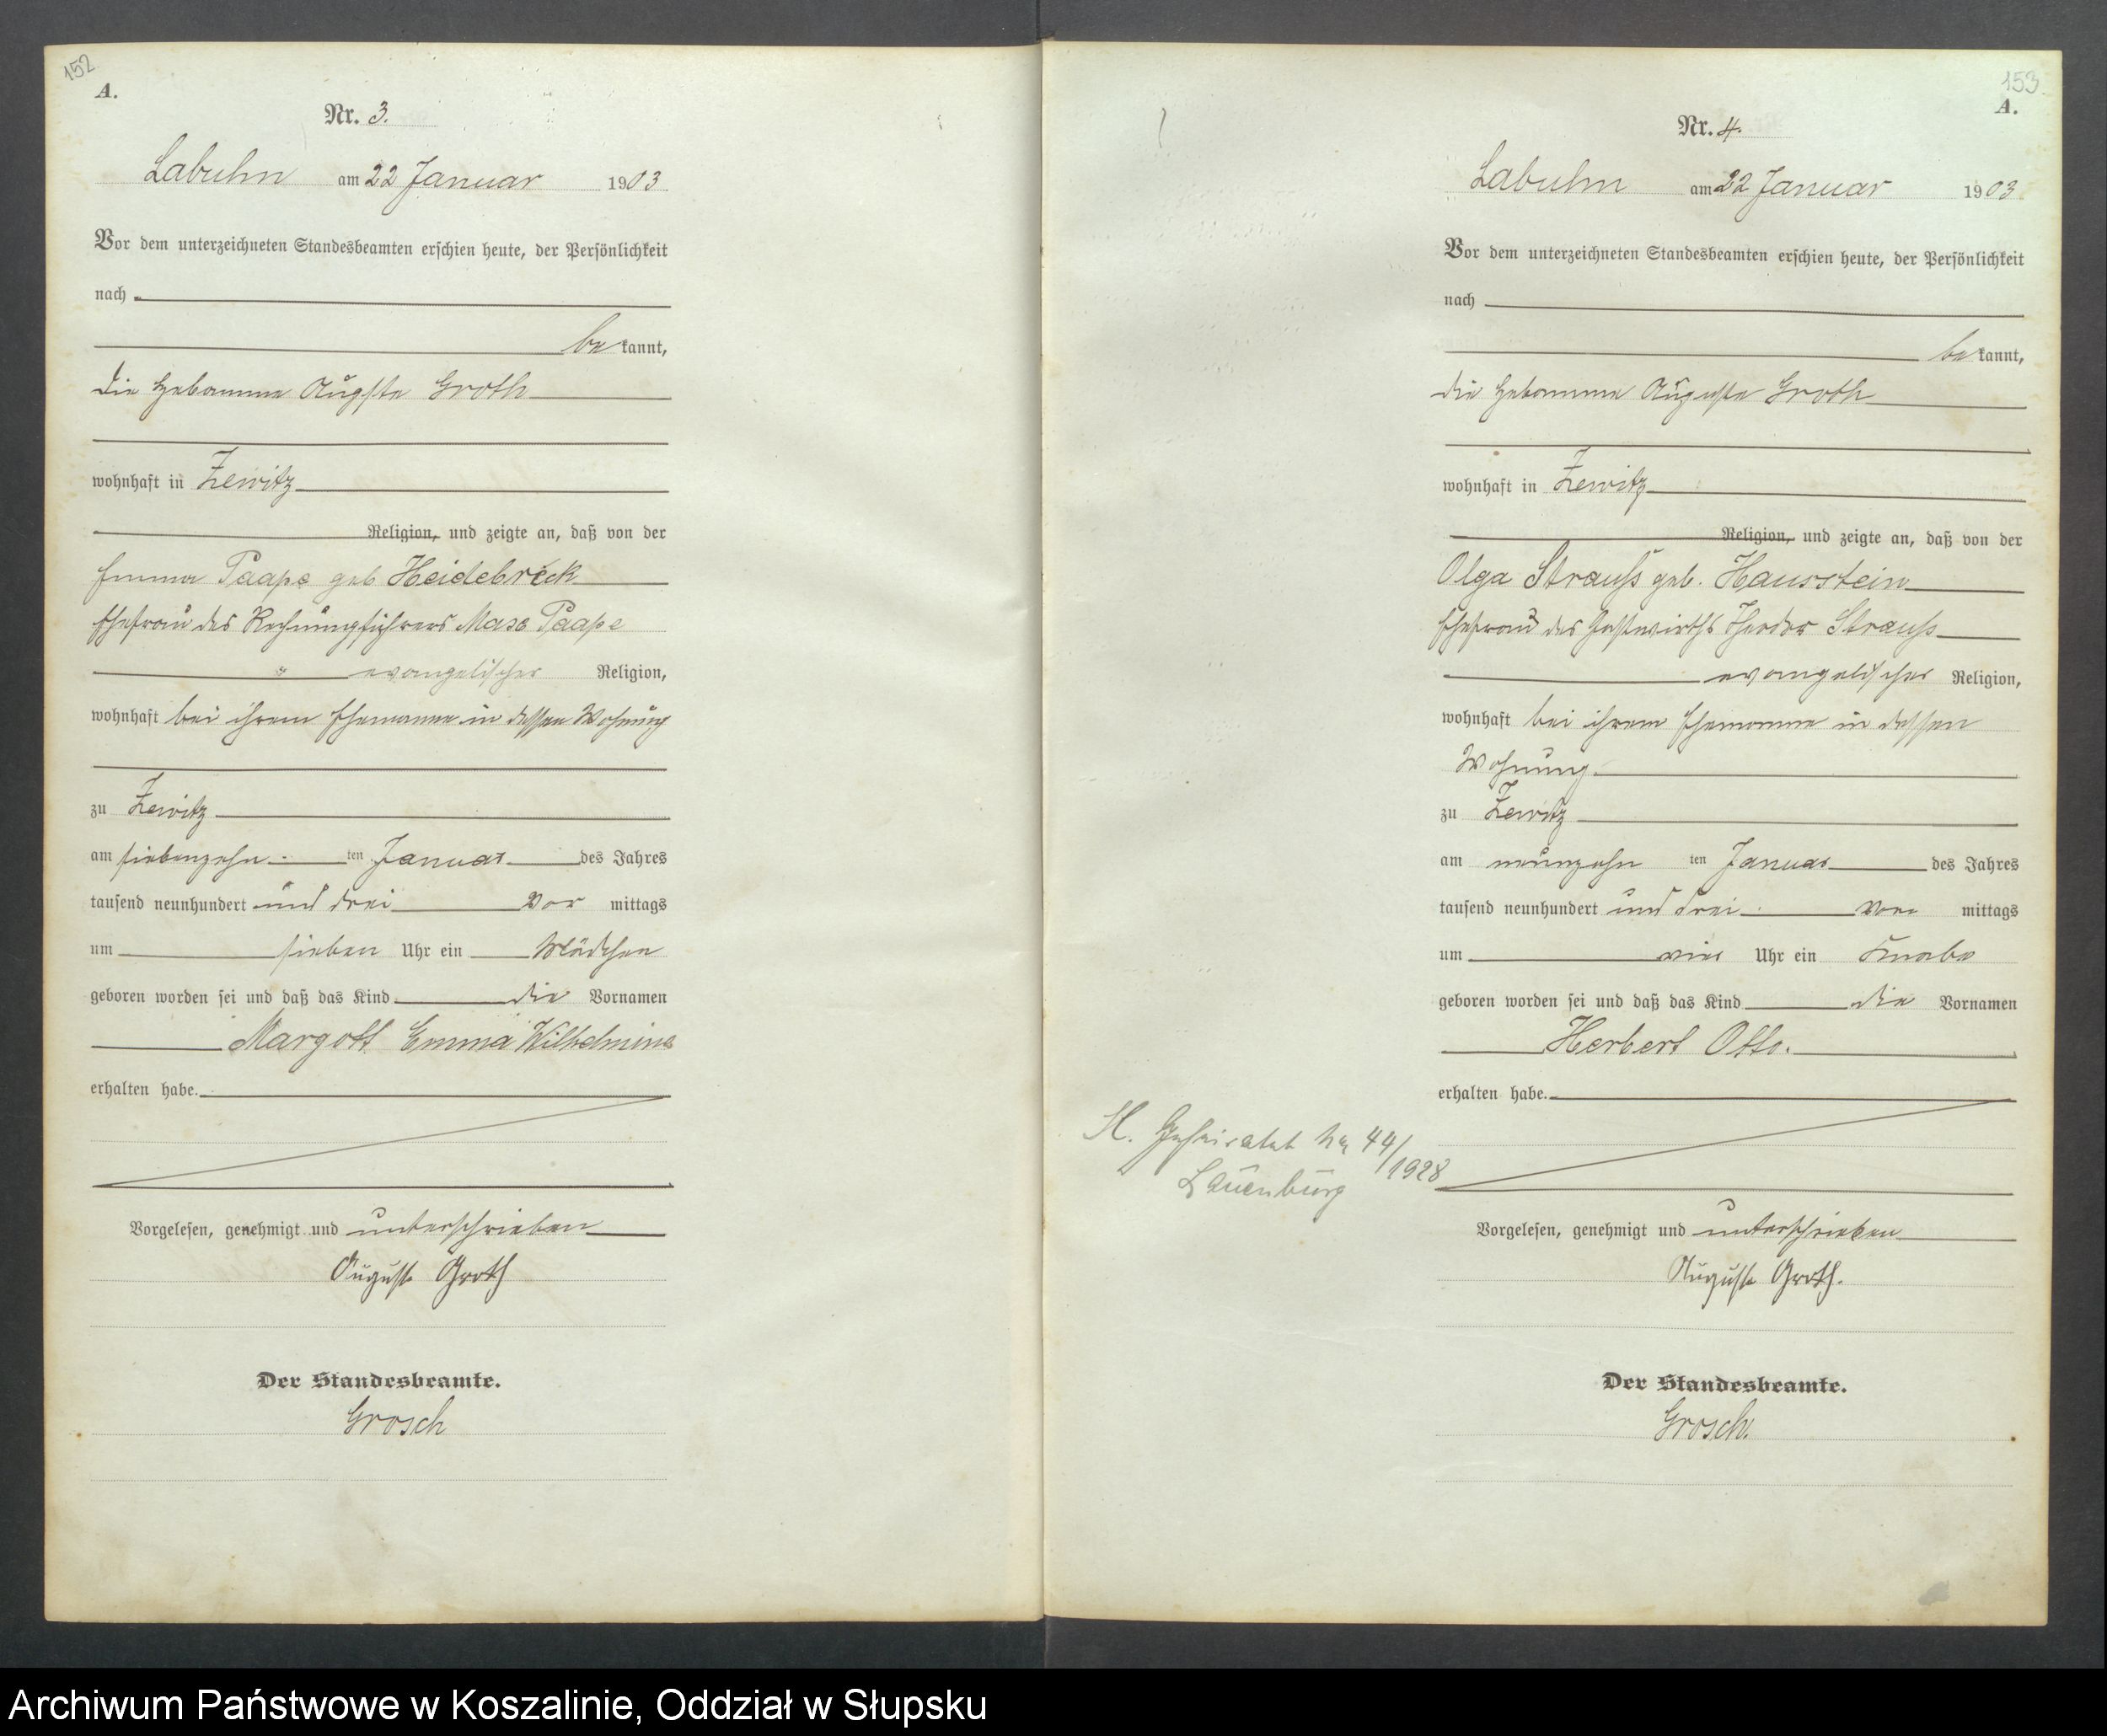 152
A.
Nr. 3.
Labuhn am 22 Januar 1903
Vor dem unterzeichneten Standesbeamten erschien heute, der Persönlichkeit
nach
be kannt,
die Hebamme Augste Groth
wohnhaft in Zewitz
Religion, und zeigte an, daß von der
Emma Paape geb Heidebreck
Ehefrau des Rechnungsführers Max Paape
evangelischer Religion,
wohnhaft bei ihrem Ehemanne in dessen Wohnung
zu Zewitz
am siebenzehn ten Januar des Jahres
tausend neunhundert und drei Vor mittags
um sieben Uhr ein Mädchen
geboren worden sei und daß das Kind die Vornamen
Margott Emma Wilhelmine
erhalten habe.
Vorgelesen, genehmigt und unterschrieben
Auguste Groth
Der Standesbeamte.
Grosch
153
A.
Nr. 4.
Labuhn am 22 Januar 1903
Vor dem unterzeichneten Standesbeamten erschien heute, der Persönlichkeit
nach
be kannt,
die Hebamme Auguste Groth
wohnhaft in Zewitz
Religion, und zeigte an, daß von der
Olga Strauß geb. Hausstein
Ehefrau des Gastwirths Theodor Strauß
evangelischer Religion,
wohnhaft bei ihrem Ehemanne in dessen
Wohnung
zu Zewitz
am neunzehn ten Januar des Jahres
tausend neunhundert und drei Vor mittags
um vier Uhr ein Knabe
geboren worden sei und daß das Kind die Vornamen
Herbert Otto.
erhalten habe.
H. Geheiratet Nr 44/1928
Lauenburg
Vorgelesen, genehmigt und unterschrieben
Auguste Groth.
Der Standesbeamte.
Grosch.
Archiwum Państwowe w Koszalinie, Oddział w Słupsku